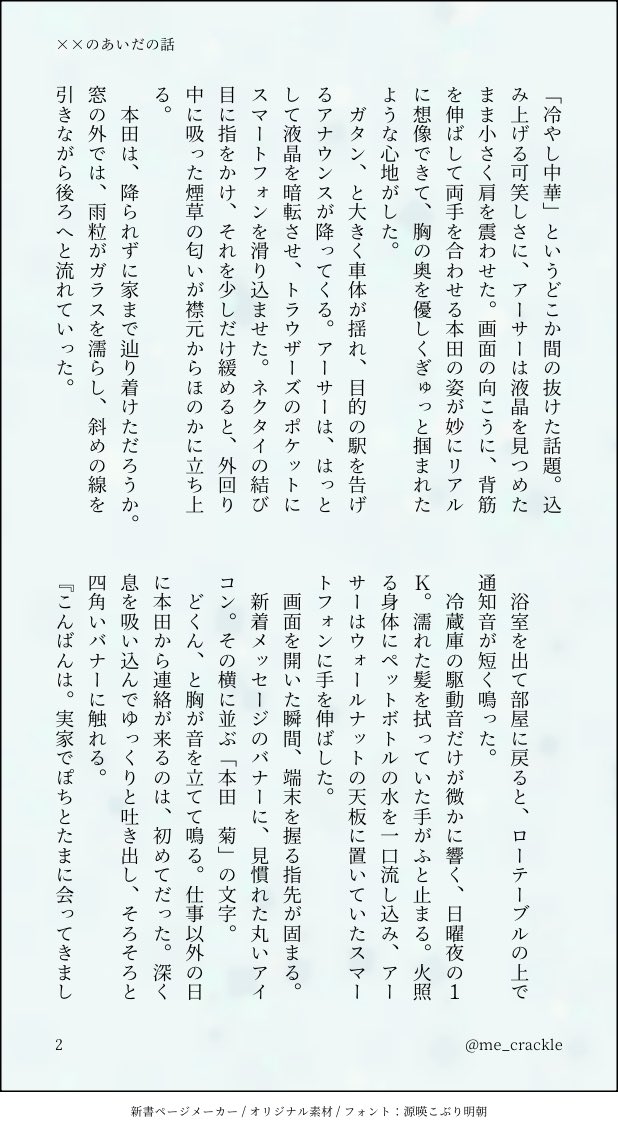 ××のあいだの話
「冷やし中華」というどこか間の抜けた話題。込
み上げる可笑しさに、アーサーは液晶を見つめた
まま小さく肩を震わせた。画面の向こうに、背筋
を伸ばして両手を合わせる本田の姿が妙にリアル
に想像できて、胸の奥を優しくぎゅっと掴まれた
ような心地がした。
ガタン、と大きく車体が揺れ、目的の駅を告げ
るアナウンスが降ってくる。アーサーは、はっと
して液晶を暗転させ、トラウザーズのポケットに
スマートフォンを滑り込ませた。ネクタイの結び
目に指をかけ、それを少しだけ緩めると、外回り
中に吸った煙草の匂いが襟元からほのかに立ち上
る。
本田は、降られずに家まで辿り着けただろうか。
窓の外では、雨粒がガラスを濡らし、斜めの線を
引きながら後ろへと流れていった。
浴室を出て部屋に戻ると、ローテーブルの上で
通知音が短く鳴った。
冷蔵庫の駆動音だけが微かに響く、日曜夜の1
K。濡れた髪を拭っていた手がふと止まる。火照
る身体にペットボトルの水を一口流し込み、アー
サーはウォールナットの天板に置いていたスマー
トフォンに手を伸ばした。
画面を開いた瞬間、端末を握る指先が固まる。
新着メッセージのバナーに、見慣れた丸いアイ
コン。その横に並ぶ「本田　菊」の文字。
どくん、と胸が音を立てて鳴る。仕事以外の日
に本田から連絡が来るのは、初めてだった。深く
息を吸い込んでゆっくりと吐き出し、そろそろと
四角いバナーに触れる。
『こんばんは。実家でぽちとたまに会ってきまし
2
@me_crackle
新書ページメーカー / オリジナル素材 / フォント：源暎こぶり明朝